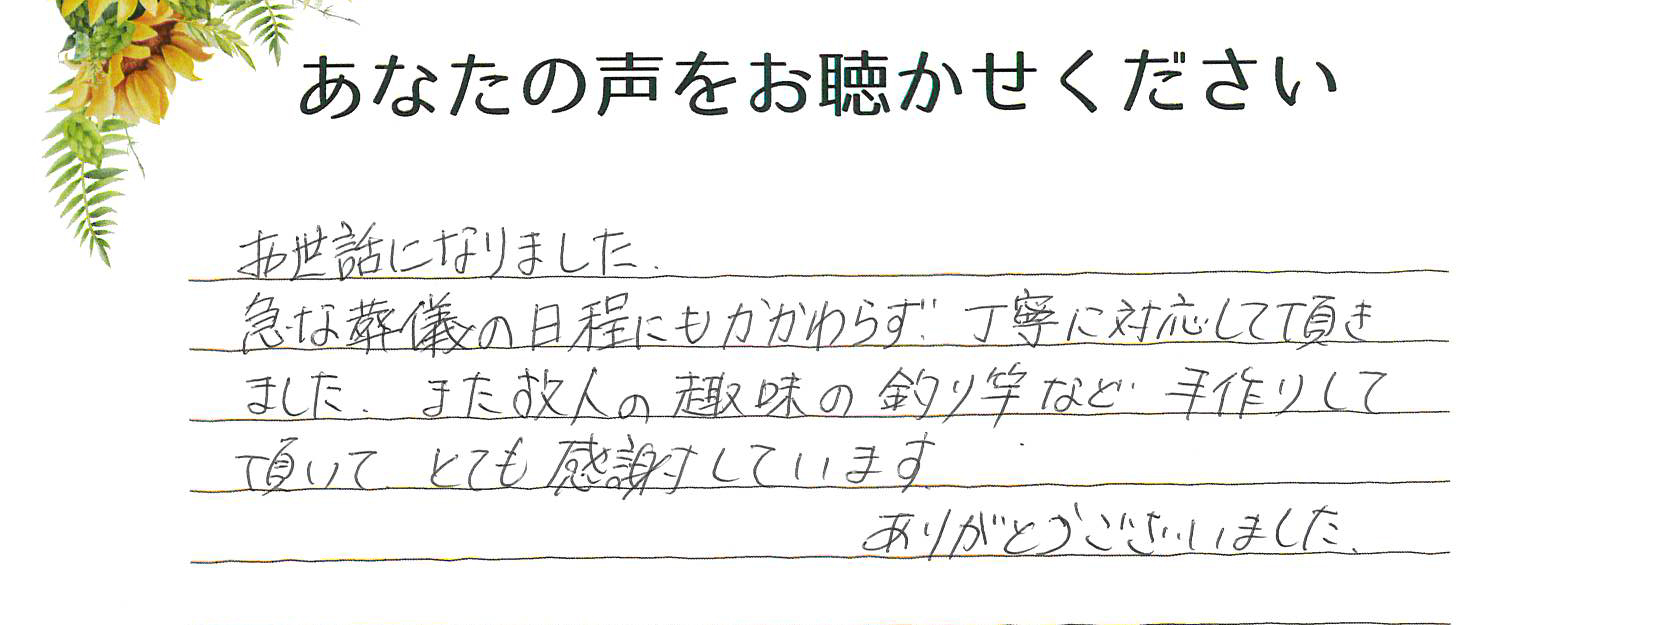 あなたの声をお聴かせください
お世話になりました.
急な葬儀の日程にもかかわらず、丁寧に対応して頂き
ました. また故人の趣味の釣り竿など 手作りして
頂いて とても感謝しています.
ありがとうございました.